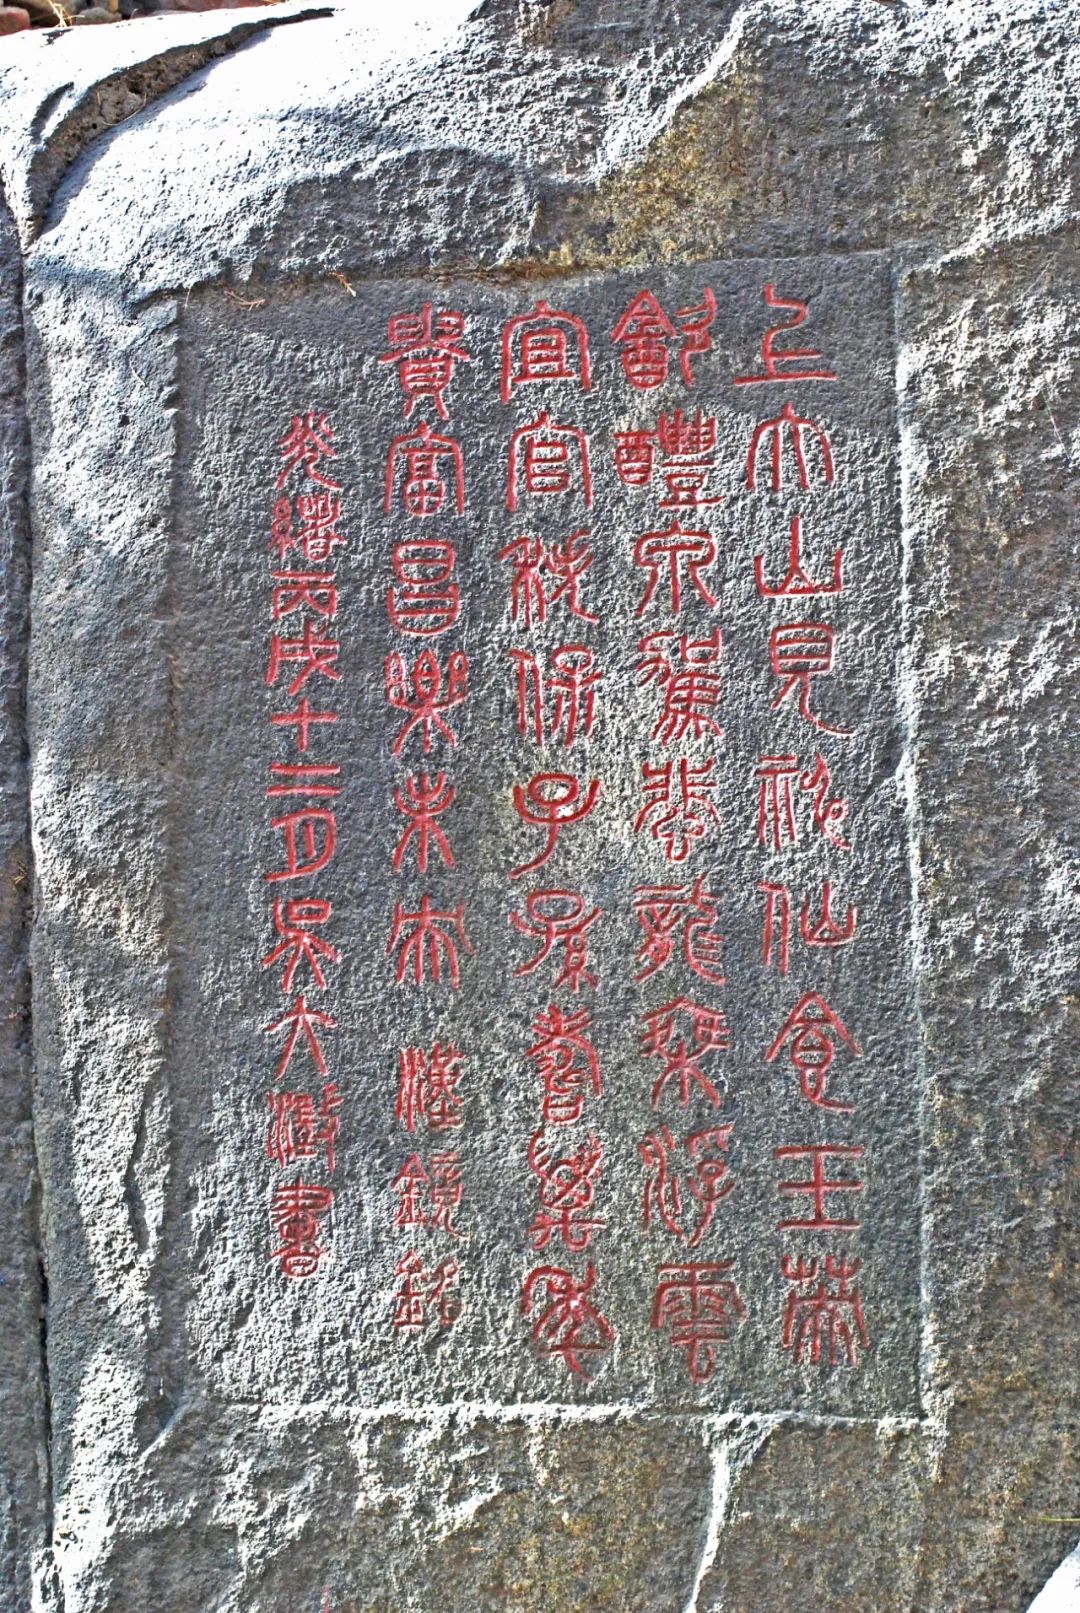 上大山見神仙食玉英
飲醴泉駕蜚龍乘浮雲
宜官秩保子孫壽萬年
貴富昌樂未央 漢鏡銘
光緒丙戌十二月吳大澂書